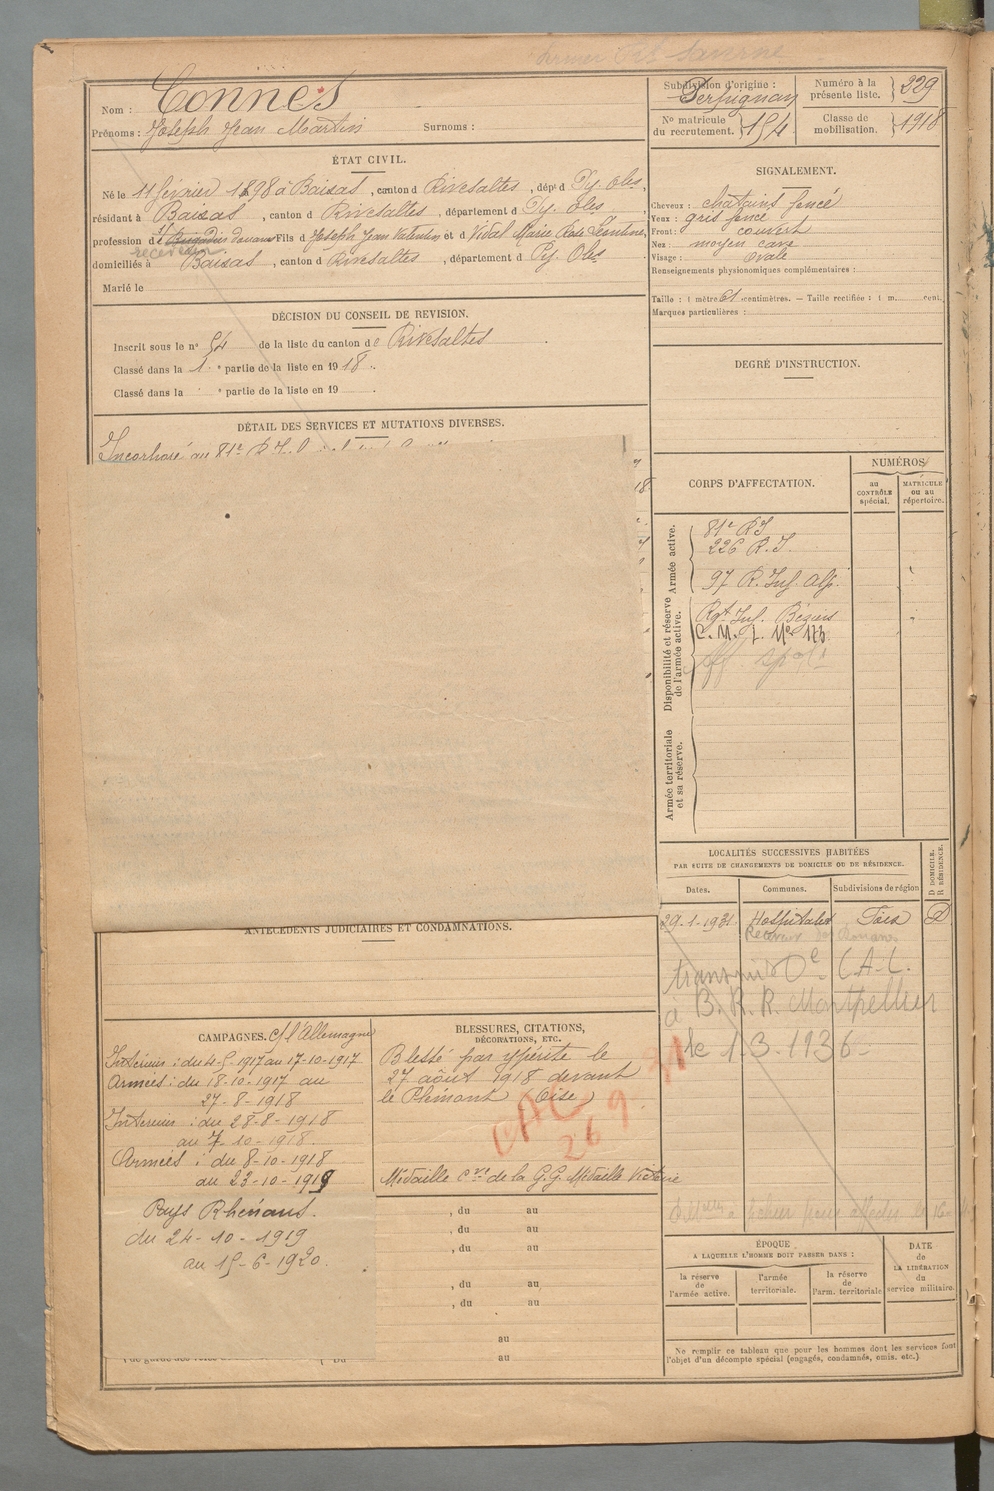 Nom : Connes
Prénoms : Joseph Jean Martin Surnoms :
ÉTAT CIVIL.
Né le 11 février 1898 à Baixas, canton d Rivesaltes, dépt d Py. Oles,
résidant à Baixas, canton d Rivesaltes, département d Py. Oles
profession d Fils d Joseph Jean Valentin et d Vidal Marie Rose
receveur
domiciliés à Baixas, canton d Rivesaltes, département d Py. Oles
Marié le
DÉCISION DU CONSEIL DE REVISION.
Inscrit sous le n° 54 de la liste du canton de Rivesaltes
Classé dans la 1 e partie de la liste en 1918.
Classé dans la e partie de la liste en 19
DÉTAIL DES SERVICES ET MUTATIONS DIVERSES.
Incorporé au 81e R.I.
ANTÉCÉDENTS JUDICIAIRES ET CONDAMNATIONS.
CAMPAGNES. c/ l'Allemagne
Intérieur : du 4-5-1917 au 17-10-1917
Armées : du 18-10-1917 au
27-8-1918
Intérieur : du 28-8-1918
au 7-10-1918.
Armées : du 8-10-1918
au 23-10-1919
Pays Rhénans.
du 24-10-1919
au 15-6-1920.
BLESSURES, CITATIONS,
DÉCORATIONS, ETC.
Blessé par ypérite le
27 août 1918 devant
le Plémont (Oise)
CAC
26 9 31
Médaille cve de la G.G. Médaille Victoire
, du au
, du au
, du au
, du au
, du au
au
au
Subdivision d'origine :
Perpignan
Numéro à la
présente liste. 229
N° matricule
du recrutement. 154
Classe de
mobilisation. 1918
SIGNALEMENT.
Cheveux : chatains foncé
Yeux : gris foncé
Front : couvert
Nez : moyen cave
Visage : ovale
Renseignements physionomiques complémentaires :
Taille : 1 mètre 61 centimètres. — Taille rectifiée : 1 m. cent.
Marques particulières :
DEGRÉ D'INSTRUCTION.
CORPS D'AFFECTATION.
NUMÉROS
au
CONTRÔLE
spécial.
MATRICULE
ou au
répertoire.
Armée active.
81e RI
226 R.I.
97 R. Inf. Alp.
Disponibilité et réserve
de l'armée active.
Rgt Inf. Béziers
C. M. I. No 173
aff spale
Armée territoriale
et sa réserve.
LOCALITÉS SUCCESSIVES HABITÉES
PAR SUITE DE CHANGEMENTS DE DOMICILE OU DE RÉSIDENCE.
Dates.
Communes.
Subdivisions de région
D DOMICILE.
R RÉSIDENCE.
29-1-1931 Hospitalet Foix D
Receveur des Douanes
transmis De C.A.C.
à B.R.R. Montpellier
le 1.3.1936
ÉPOQUE
A LAQUELLE L'HOMME DOIT PASSER DANS :
la réserve
de
l'armée active.
l'armée
territoriale.
la réserve
de
l'arm. territoriale
DATE
de
LA LIBÉRATION
du
service militaire.
Ne remplir ce tableau que pour les hommes dont les services font
l'objet d'un décompte spécial (engagés, condamnés, omis. etc.)